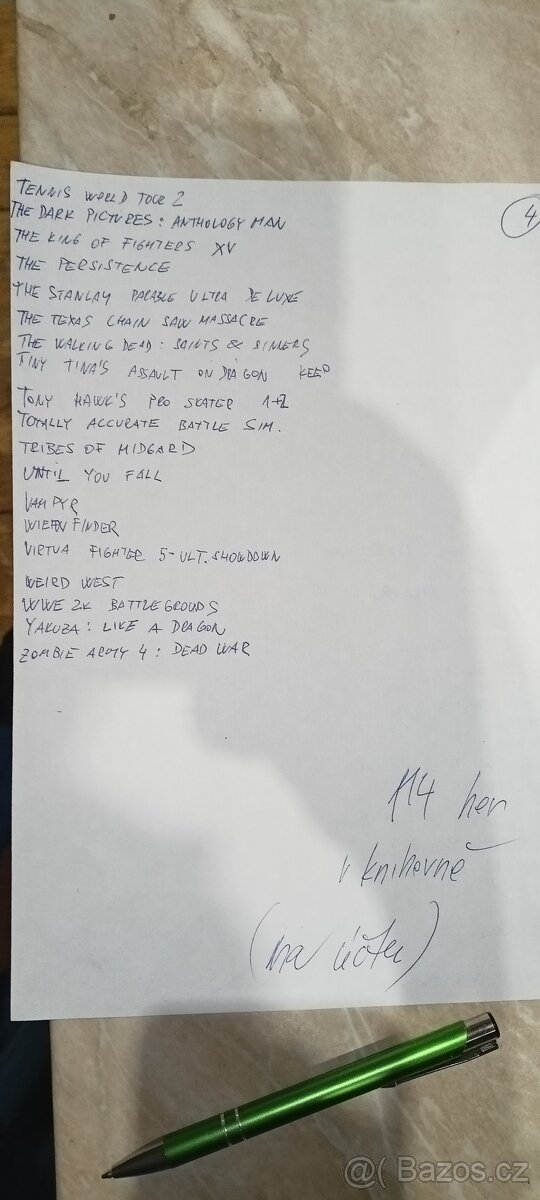 4
TENNIS WORLD TOUR 2
THE DARK PICTURES: ANTHOLOGY MAN
THE KING OF FIGHTERS XV
THE PERSISTENCE
THE STANLAY PARABLE ULTRA DELUXE
THE TEXAS CHAIN SAW MASSACRE
THE WALKING DEAD: SAINTS & SINNERS
TINY TINA'S ASSAULT ON DRAGON KEEP
TONY HAWK'S PRO SKATER 1+2
TOTALLY ACCURATE BATTLE SIM.
TRIBES OF MIDGARD
UNTIL YOU FALL
VAMPYR
FINDER
VIRTUA FIGHTER 5-ULT. SHOWDOWN
WEIRD WEST
WWE 2K BATTLEGROUDS
YAKUZA: LIKE A DRAGON
ZOMBIE ARMY 4: DEAD WAR
114 her
v knihovně
(na účtu)
@( Bazos.cz